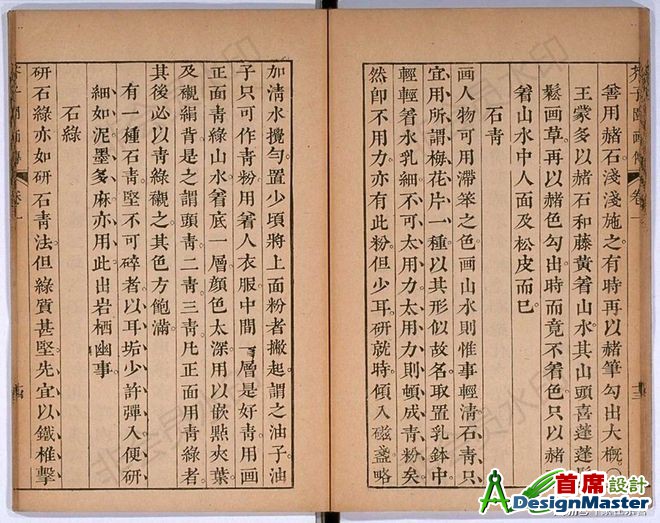 芥子園畫傳
卷一
善用赭石淺淺施之有時再以赭筆勾出大概
王蒙多以赭石和藤黃着山水其山頭喜蓬蓬
鬆画草再以赭色勾出時而竟不着色只以赭
着山水中人面及松皮而已
石青
画人物可用滯笨之色画山水則惟事輕清石青只
宜用所謂梅花片一種以其形似故名取置乳鉢中
輕輕着水乳細不可太用力太用力則頓成青粉矣
然卽不用力亦有此粉但少耳研就時傾入磁盞略
加清水攪勻置少頃將上面粉者撇起謂之油子油
子只可作青粉用着人衣服中間一層是好青用画
正面青綠山水着底一層顔色太深用以嵌點夾葉
及襯絹背是之謂頭青二青三青凡正面用青綠者
其後必以青綠襯之其色方飽滿
有一種石青堅不可碎者以耳垢少許彈入便研
細如泥墨多麻亦用此出岩栖幽事
石綠
研石綠亦如研石青法但綠質甚堅先宜以鐵椎擊
首席設計
ADesignMaster